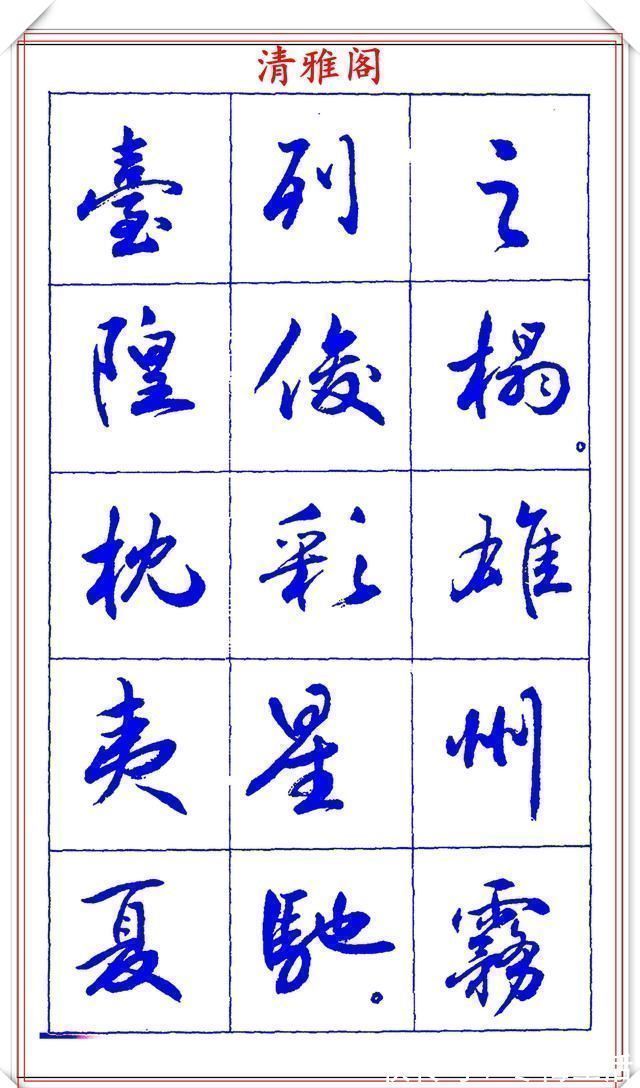 清雅阁
之榻。雄州霧
列俊彩星馳。
臺隍枕夷夏